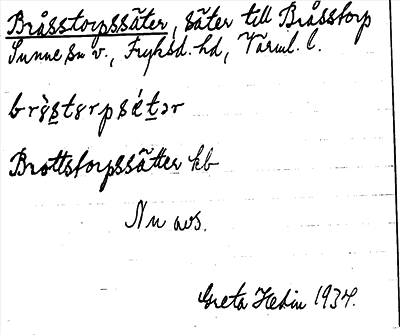 Bråsstorpssäter, säter till Bråsstorp
Sunne sn v., Fryksd. hd, Värml. l.
Brottstorpssätter kb
Nu avs.
Greta Hedin 1934.